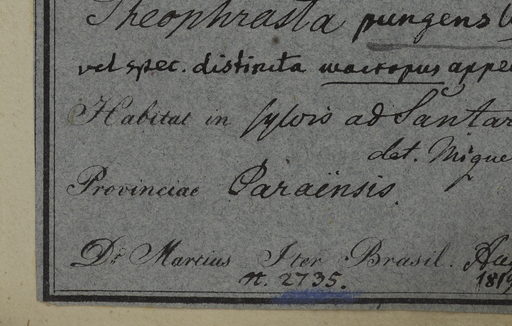 Theophrasta pungens
vel spec. distincta macropus appe
Habitat in sylvis ad Santar
det. Mique
Provinciae Paraënsis.
Dr Martius Iter Brasil. Aug
n. 2735. 1819